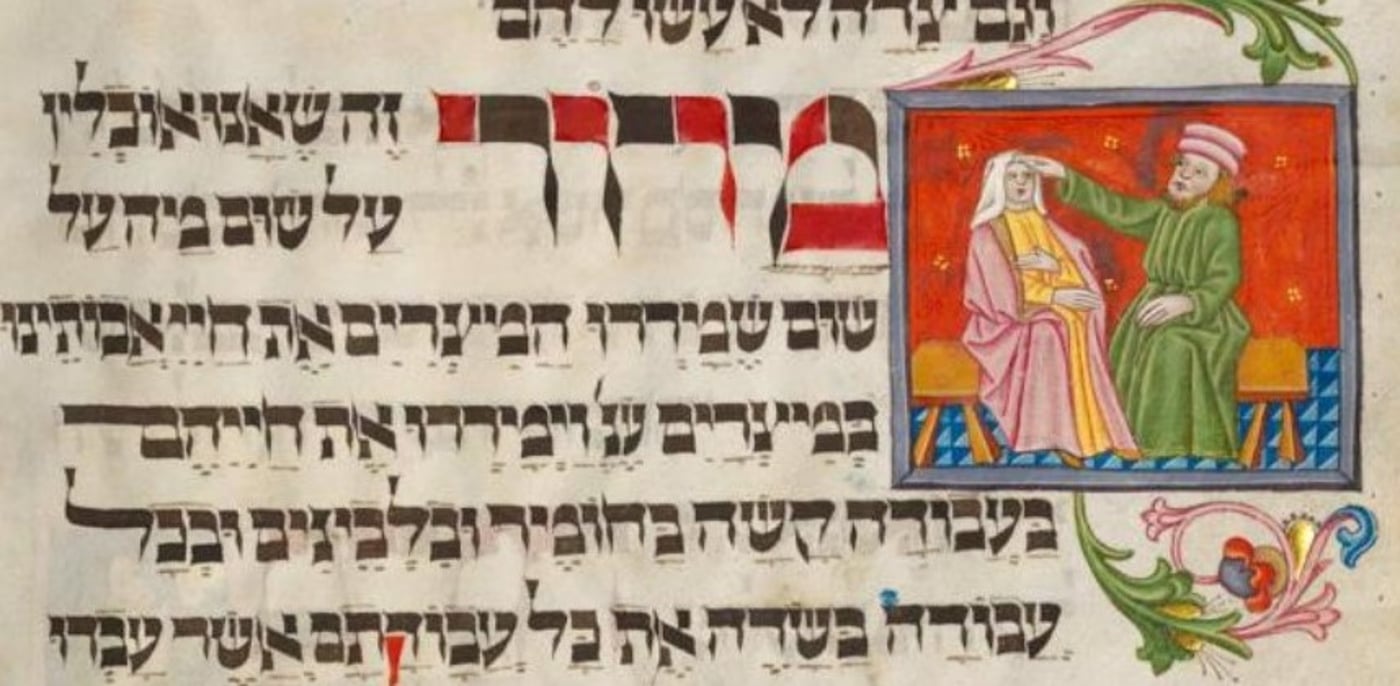 וגם צדה לא עשו להם
מרור זה שאנו אוכלין
על שום מה על
שום שמררו המצרים את חיי אבותינו
במצרים שנ' וימררו את חייהם
בעבודה קשה בחומר ובלבינים ובכל
עבודה בשדה את כל עבודתם אשר עבדו